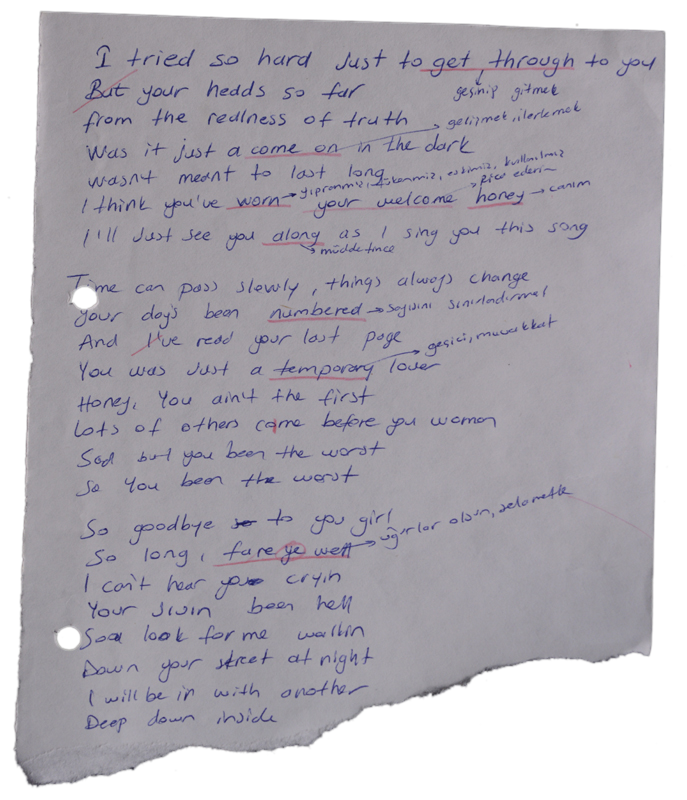 I tried so hard Just to get through to you
But your heads so far
geçinip gitmek
from the realness of truth
gelişmek, ilerlemek
Was it just a come on in the dark
wasn't meant to last long
yıpranmış, tükenmiş, eskimiş, kullanılmış
rica ederim
I think you've worn your welcome honey
canım
I'll Just see you along as I sing you this song
müddetince
Time can pass slowly, things always change
your day's been numbered
sayısını sınırladırmak
And I've read your last page
geçici, muvakkat
You was Just a temporary lover
Honey, You ain't the first
Lots of others came before you woman
Sad but you been the worst
So You been the worst
So goodbye to you girl
So long, fare ye well
uğurlar olsun, selametle
I can't hear you cryin
Your Jivin been hell
Soo look for me walkin
Down your street at night
I will be in with another
Deep down inside